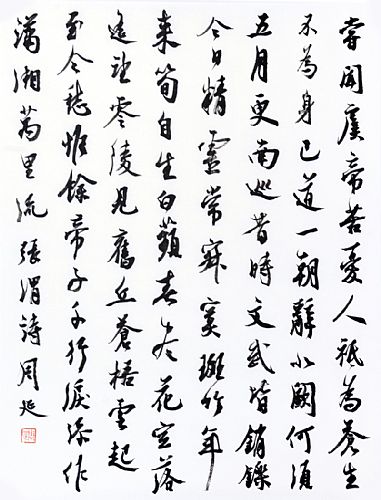 嘗聞虞帝苦憂人祇為蒼生
不為身已道一朝辭北闕何須
五月更南巡昔時文武皆銷鑠
今日精靈常寂寞斑竹年
來筍自生白蘋春盡花空落
遙望零陵見舊丘蒼梧雲起
至今愁惟餘帝子千行淚添作
瀟湘萬里流張謂詩周延